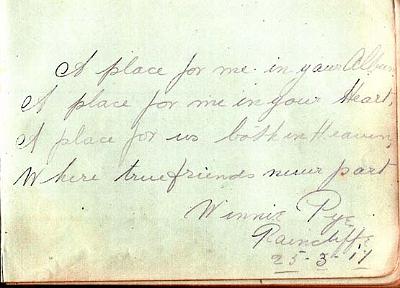 A place for me in your Album
A place for me in your Heart,
A place for us both in Heaven,
Where true friends never part
Winnie Pye
Raincliffe
25-3-17